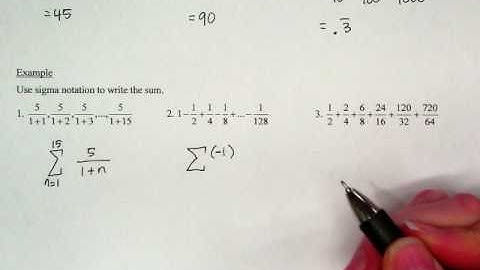 =45 =90 = .3̅
Example
Use sigma notation to write the sum.
1. 5/(1+1), 5/(1+2), 5/(1+3), ..., 5/(1+15) 2. 1 - 1/2 + 1/4 - 1/8 + ... - 1/128 3. 1/2 + 2/4 + 6/8 + 24/16 + 120/32 + 720/64
15 ∑ n=1 5/(1+n) ∑ (-1)